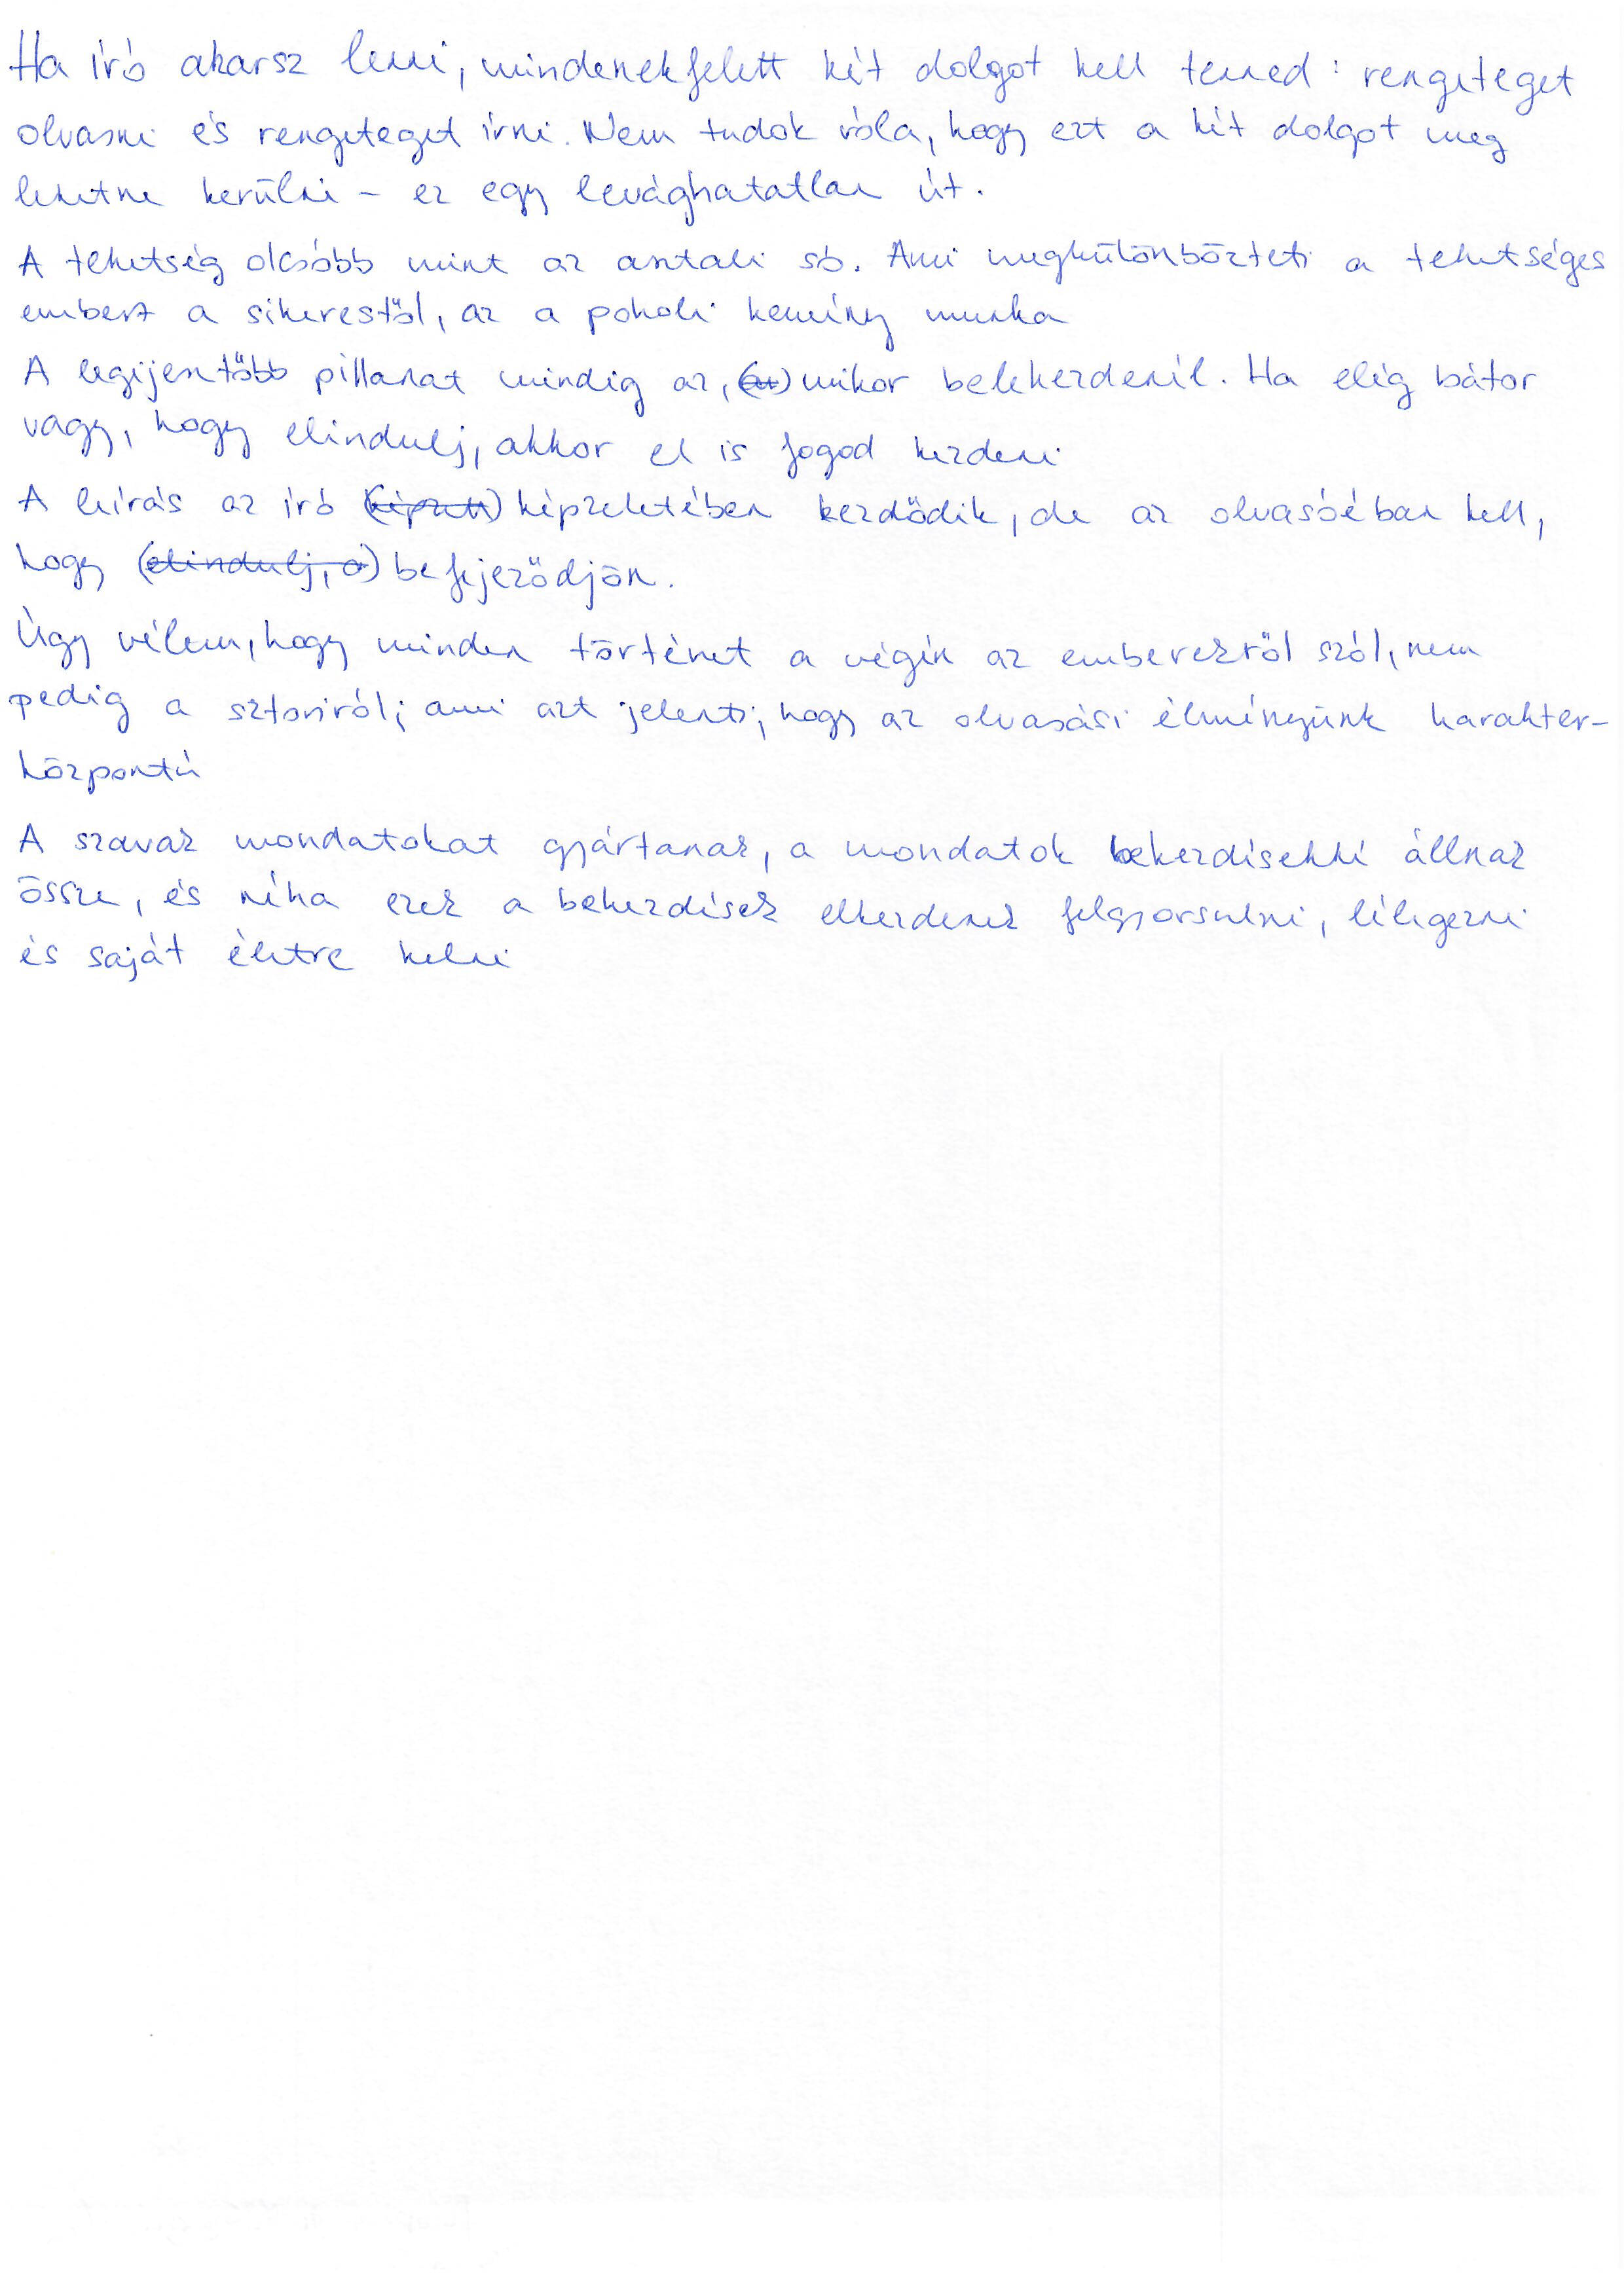 Ha író akarsz lenni, mindenekfelett két dolgot kell tenned: rengeteget
olvasni és rengeteget írni. Nem tudok róla, hogy ezt a két dolgot meg
lehetne kerülni – ez egy levághatatlan út.
A tehetség olcsóbb mint az asztali só. Ami megkülönbözteti a tehetséges
embert a sikerestől, az a pokoli kemény munka
A legijesztőbb pillanat mindig az, mikor belekezdenél. Ha elég bátor
vagy, hogy elindulj, akkor el is fogod kezdeni
A leírás az író képzeletében kezdődik, de az olvasóéban kell,
hogy (elindulj, a) befejeződjön.
Úgy vélem, hogy minden történet a végén az emberekről szól, nem
pedig a sztoriról; ami azt jelenti, hogy az olvasási élményünk karakter-
központú
A szavak mondatokat gyártanak, a mondatok bekezdésekké állnak
össze, és néha ezek a bekezdések elkezdenek felgyorsulni, lélegezni
és saját életre kelni